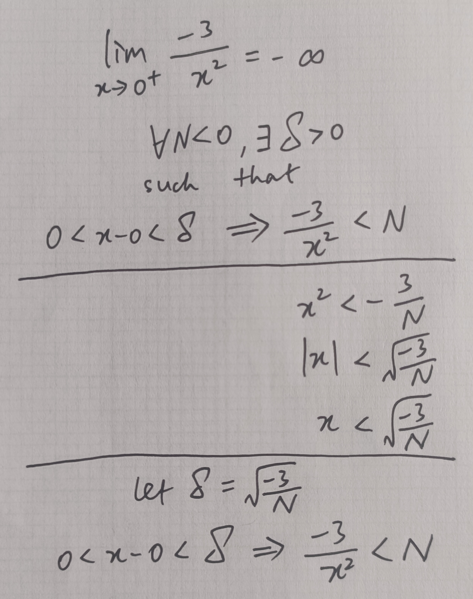 lim x→0⁺ -3/x² = -∞
∀N<0, ∃δ>0
such that
0<x-0<δ ⟹ -3/x² < N
x² < -3/N
|x| < √(-3/N)
x < √(-3/N)
let δ = √(-3/N)
0<x-0<δ ⟹ -3/x² < N